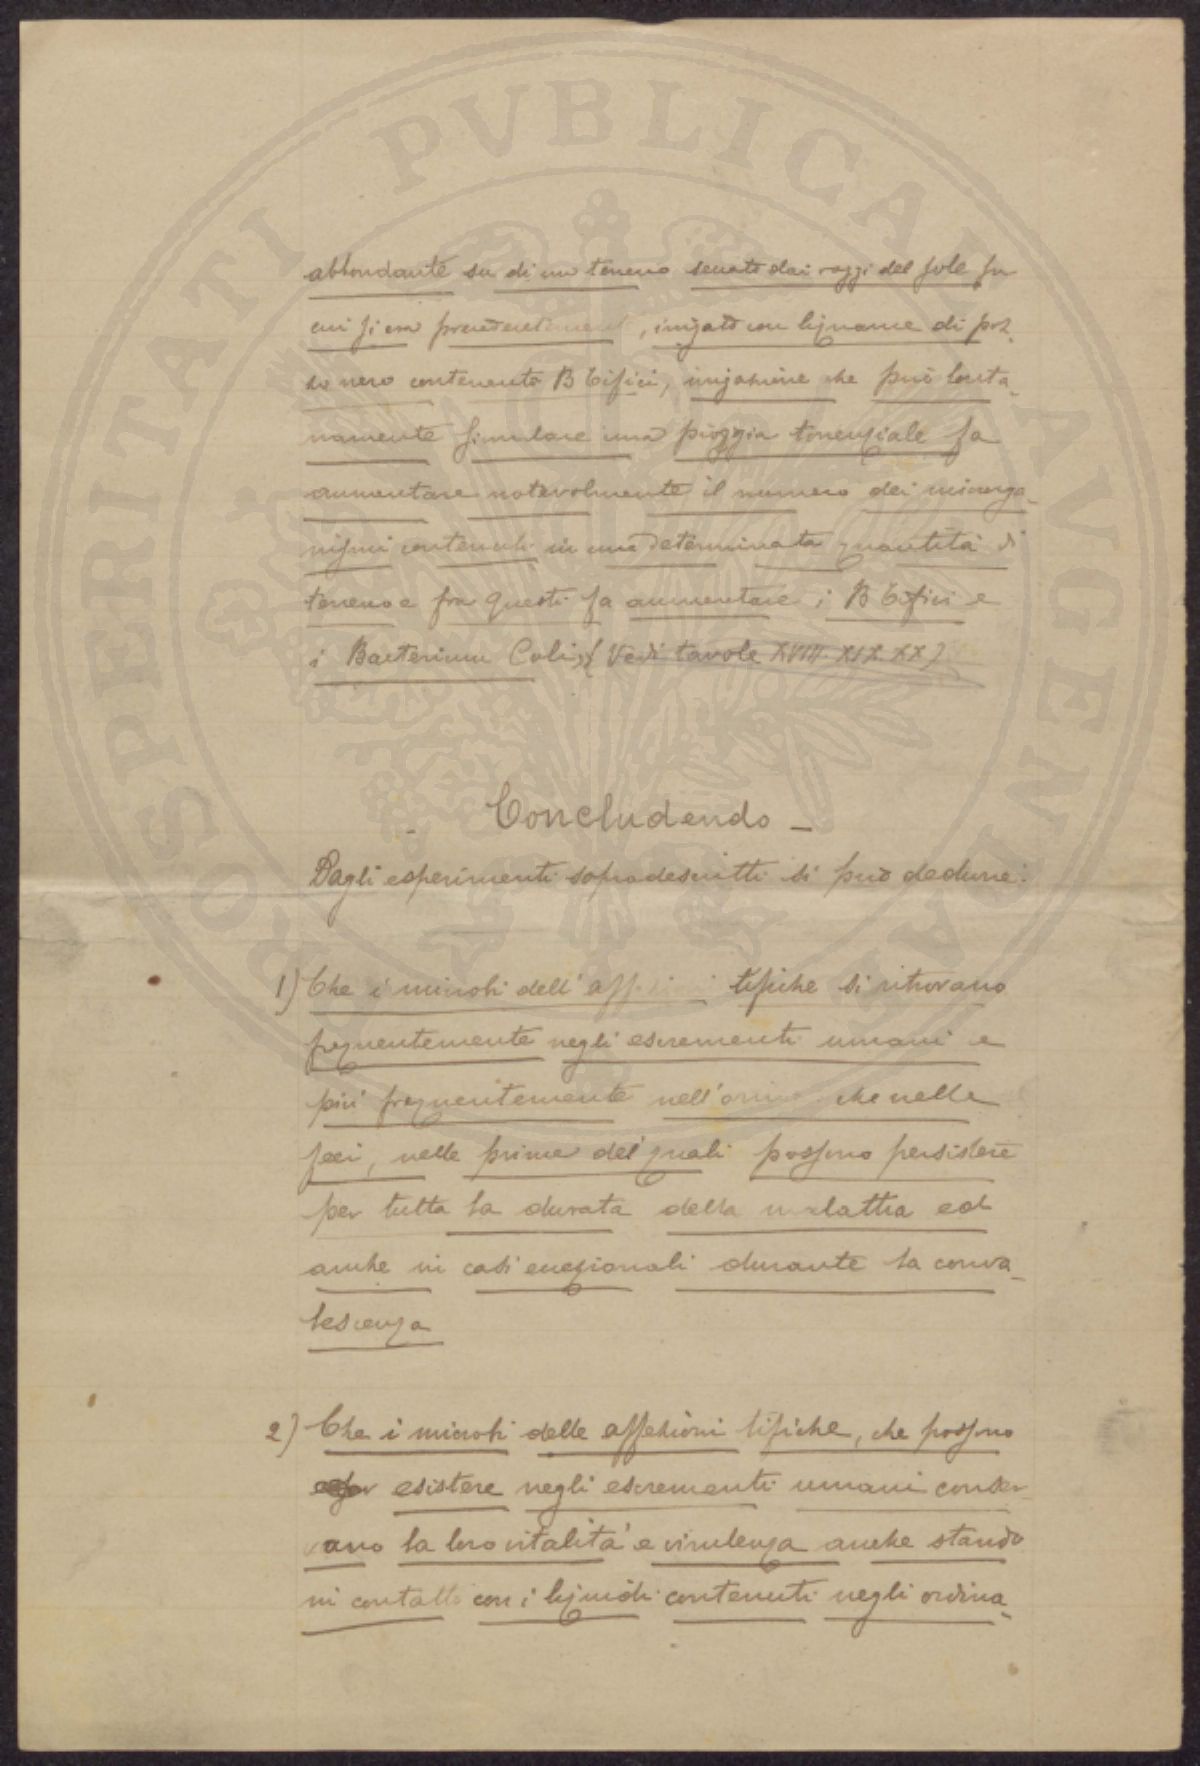 PROSPERITATI PVBLICAE AVGENDAE
abbondante su di un terreno seccato dai raggi del sole su
cui si era precedentement, irrigato con liquame di poz-
zo nero contenente B tifici, irrigazione che può lonta-
namente simulare una pioggia torrenziale fa
aumentare notevolmente il numero dei microrga-
nismi contenuti in una determinata quantità di
terreno e fra questi fa aumentare i B tifici e
i Bacterium Coli, (Vedi tavole XVIII. XIX. XX)
- Concludendo -
Dagli esperimenti sopradescritti si può dedurre:
1) Che i microbi dell'affezioni tifiche si ritrovano
frequentemente negli escrementi umani e
più frequentemente nell'orina che nelle
feci, nelle prime dei quali possono persistere
per tutta la durata della malattia ed
anche in casi eccezionali durante la conva-
lescenza
2) Che i microbi delle affezioni tifiche, che possono
esistere negli escrementi umani conser-
vano la loro vitalità e virulenza anche stando
in contatto con i liquidi contenuti negli ordina-